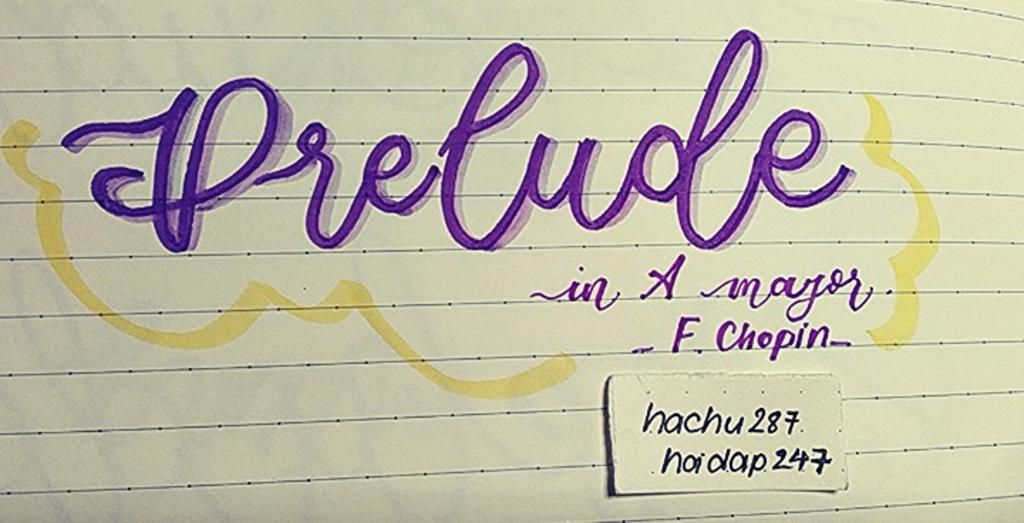 Prelude
in A major.
- F. Chopin -
hachu287
hoidap247